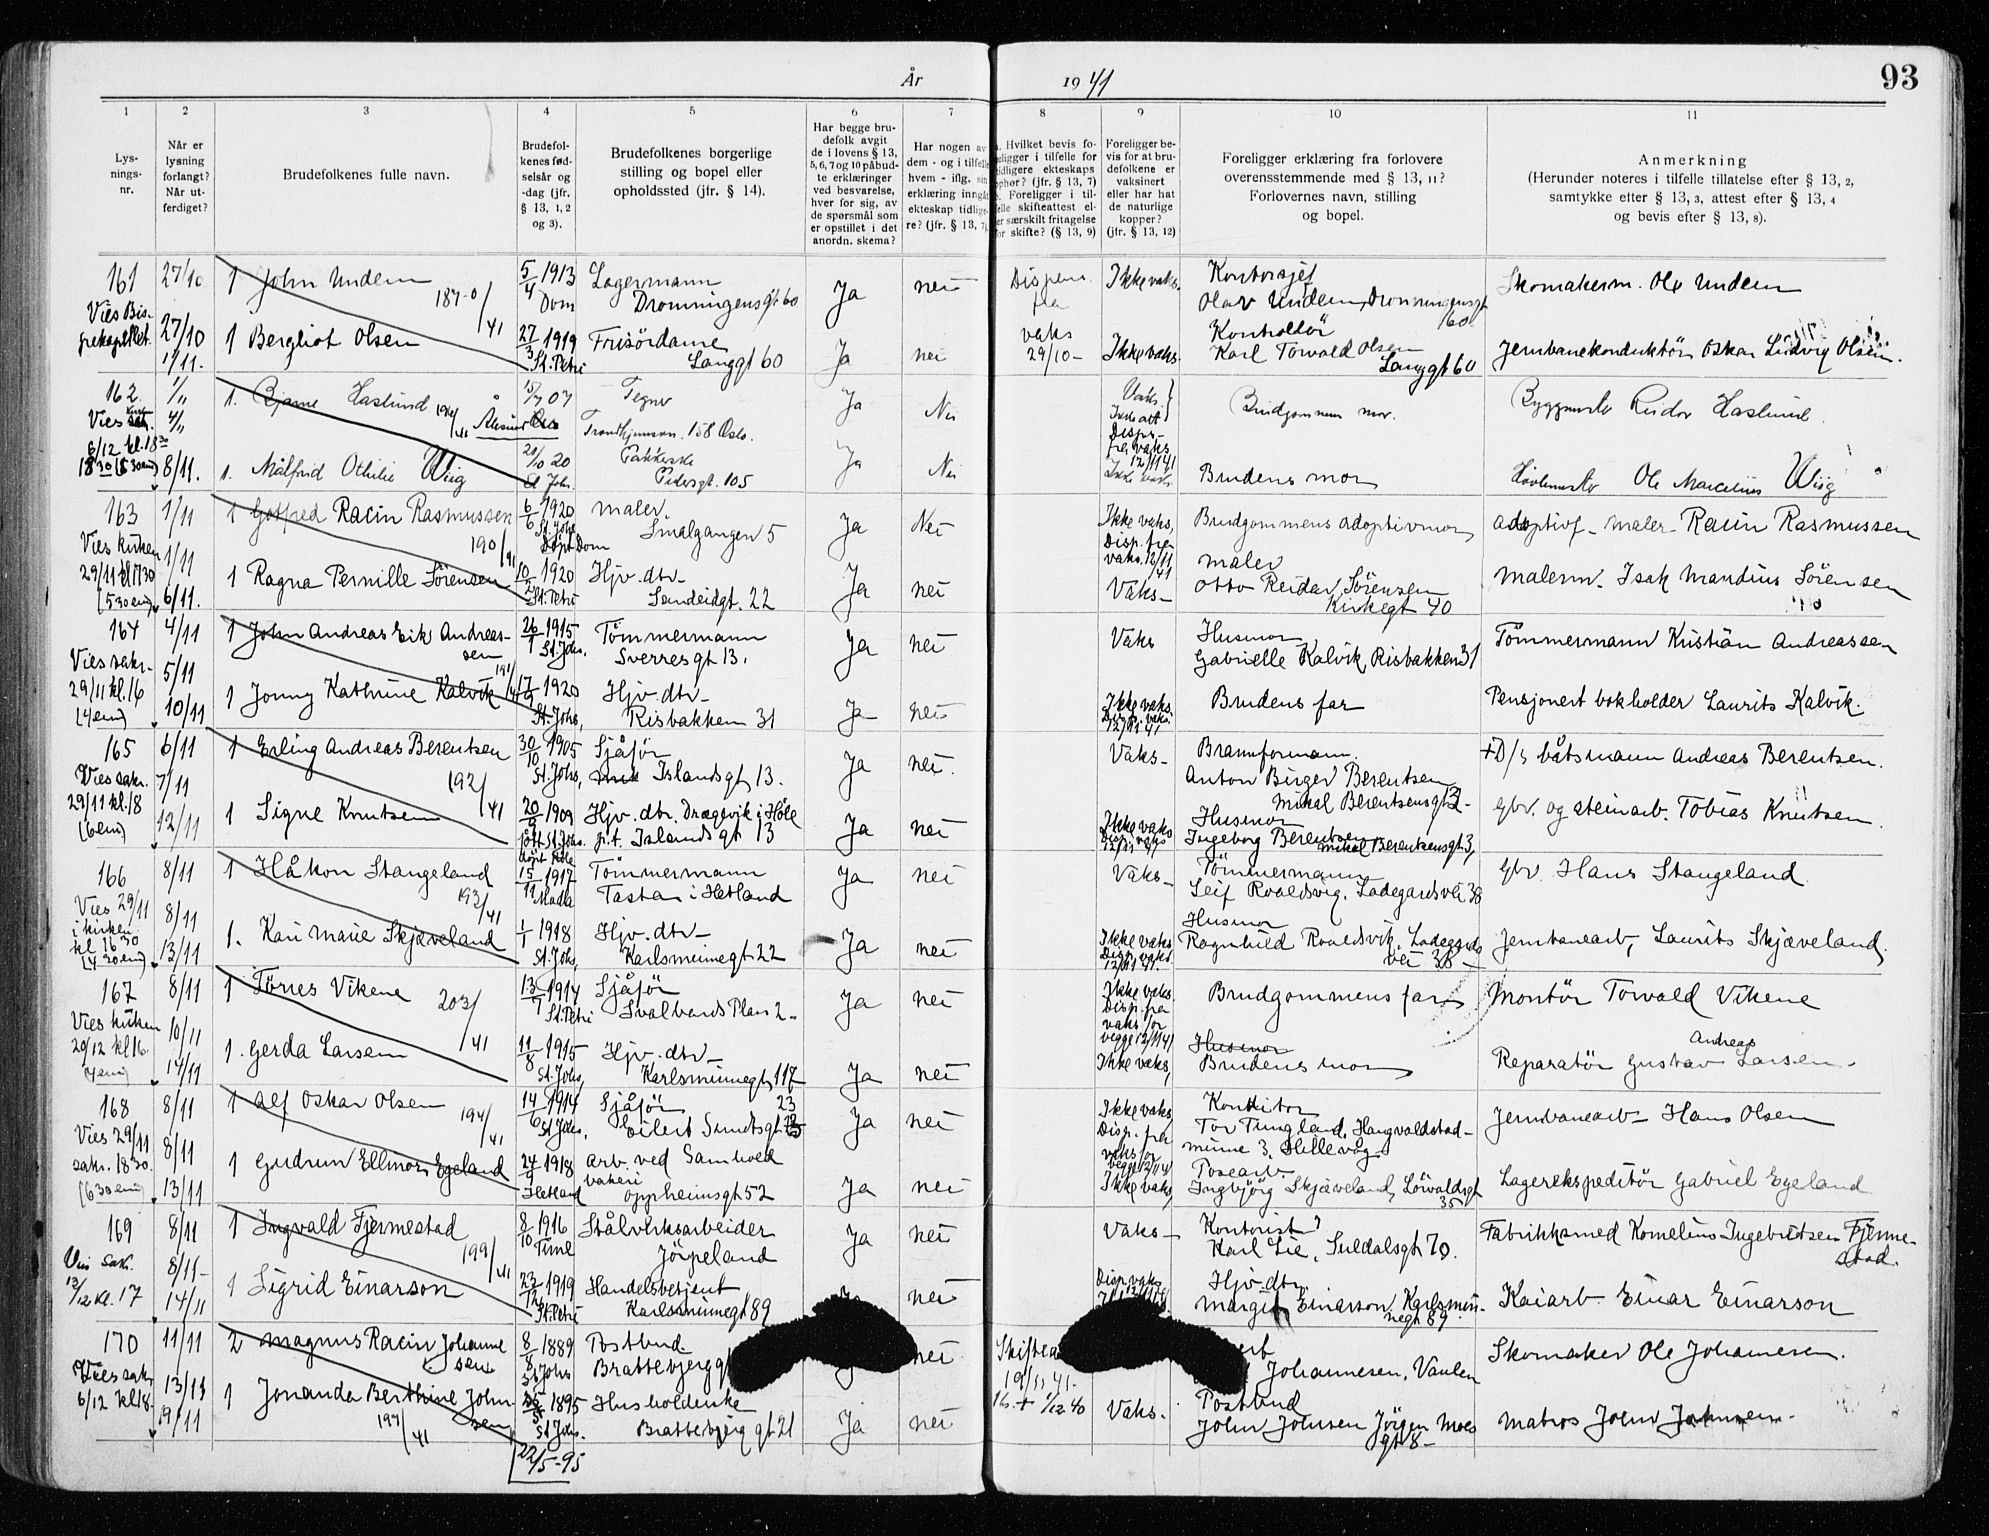 År 1941
93
1 2 3 4 5 6 7 8 9 10 11
Lys-
nings-
nr.
Når er
lysning
forlangt?
Når ut-
ferdiget?
Brudefolkenes fulle navn.
Brudefol-
kenes fød-
selsår og
-dag (jfr.
§ 13, 1, 2
og 3).
Brudefolkenes borgerlige
stilling og bopel eller
opholdssted (jfr. § 14).
Har begge bru-
defolk avgit
de i lovens § 13,
5, 6, 7 og 10 påbud-
te erklæringer
ved besvarelse,
hver for sig, av
de spørsmål som
er opstillet i det
anordn. skema?
Har nogen av
dem - og i tilfelle
hvem - iflg. sin
erklæring inngått
ekteskap tidlige-
re? (jfr. § 13, 7).
Hvilket bevis fo-
religger i tilfelle for
tidligere ekteskaps
ophør? (jfr. § 13, 7)
Foreligger i til-
felle skifteattest el-
er særskilt fritagelse
for skifte? (§ 13, 9)
Foreligger be-
vis for at bru-
defolkene er
vaksinert
eller har hat
de naturlige
kopper?
(jfr. § 13, 12)
Foreligger erklæring fra forlovere
overensstemmende med § 13, 11?
Forlovernes navn, stilling
og bopel.
Anmerkning
(Herunder noteres i tilfelle tillatelse efter § 13, 2,
samtykke efter § 13, 3, attest efter § 13, 4
og bevis efter § 13, 8).
161 27/10 1 John Undem 5/4 1913 Dom Lagermann
Dronningensgt 60 Ja nei Dispens. fra vaks 29/10- Ikke vaks. Kontorsjef
Olav Undem, Dronningensgt 60. Skomakerm. Ole Undem
187-0/41
Vies Bis-
pekapellet. 27/10 1 Bergliot Olsen 27/3 1919 St. Petri Frisördame
Langgt 60 Ja nei Ikke vaks. Kontrollör
Karl Torvald Olsen
Langgt 60 Jernbanekonduktör Oskar Ludvig Olsen.
1/11.
162. 1/11 1. Bjarne Haslund 15/7 07 Tegner
Trondhjemsvn. 158 Oslo. Ja Nei Vaks. Brudgommens mor. Byggmester Reidar Haslund
Vies 4/11
6/12 kl. 18 30
8/11. 1. Målfrid Othilie Wiig 20/10 20 St. Johs. Pakkerske
Pedersgt. 105 Ja Nei Brudens mor Hövlemester Ole Marcelius Wiig
163 1/11 1 Gotfred Racin Rasmussen 6/6 1920 St. Johs Döpt Dom maler.
Smalgangen 5 Ja Nei Ikke vaks, Disp. fra vaks. 12/11 41 Brudgommens adoptivmor adoptivf- maler- Racin Rasmussen
190/41
Vies kirken
29/11 kl 17 30
(5 30 em) 1/11 6/11. 1 Ragna Pernille Sörensen 10/2 1920 St. Petri Hjv. dtr-
Sandeidgt. 22 Ja nei Vaks- maler
Otto Reidar Sörensen
Kirkegt 40 malerm- Isak Mandius Sörensen
164 4/11 1 John Andreas Eik Andreas-
sen 26/1 1915 St. Johs. Tömmermann
Sverresgt 13. Ja nei Vaks Husmor
Gabrielle Kalvik, Risbakken 31 Tömmermann Kristian Andreassen
191/41
Vies sakr-
29/11 kl. 16
(4 em) 5/11 10/11 1 Jonny Kathrine Kalvik 17/9 1920 St. Johs, Hjv. dtr-
Risbakken 31 Ja nei Ikke vaks. Disp. vaks. 12/11 41 Brudens far Pensjonert bokholder Laurits Kalvik.
165 6/11 1 Erling Andreas Berentsen 30/10 1905 St. Johs, Sjåför
Islandsgt 13. Ja nei. Vaks- Brannformann.
Anton Birger Berentsen
Mikal Berentsensgt 3- +D/s båtsmann Andreas Berentsen.
192/41
Vies sakr.
29/11 kl. 18
(6 em) 7/11 12/11 1 Signe Knutsen 20/9 1909 Hjv. dtr. Dragevik i Höle
p.t. Islandsgt 13 Ja nei Ikke vaks Husmor
Ingeborg Berentsen
Mikal Berentsensgt 3, Gbr. og steinarb. Tobias Knutsen.
166 8/11 1 Håkon Stangeland 15/11 1917 Madla Tömmermann
Tasta i Hetland Ja nei Vaks- Tömmermann
Leif Roaldsvig, Ladegårdsvei 38 Gbr. Hans Stangeland.
193/41
Vies 29/11
i kirken
kl 16 30
(4 30 em) 8/11 13/11 1. Kari Marie Skjæveland 1/1 1918 St. Johs, Hjv. dtr-
Karlsminnegt 22 Ja nei Ikke vaks. Disp. vaks. 12/11 41. Husmor
Ragnhild Roaldsvik, Ladegårds
vei 38- Jernbanearb, Laurits Skjæveland.
167 8/11 1 Törres Vikene 13/7 1914 St. Petri Sjåför
Svalbards Plass 2- Ja nei Ikke vaks. Disp. fra vaks for begge 12/11 41 Brudgommens far Montör Torvald Vikene
203/41
Vies kirken
20/12 kl 16.
(4 em) 10/11 14/11 1. Gerda Larsen 11/8 1915 St. Johs, Hjv. dtr-
Karlsminnegt 117 Ja nei Ikke vaks, Husmor
Brudens mor Reparatör Gustav Andreas Larsen-
168 8/11 1 Alf Oskar Olsen 14/6 1914 St. Johs. Sjåför
Eilert Sundtsgt 23 Ja nei Ikke vaks, Disp. fra vaks for begge 12/11 41 Konditor
Tor Tungland, Haugvaldstad-
minne 3, Hillevåg Jernbanearb- Hans Olsen
194/41
Vies 29/11
sakr. 18 30.
(6 30 em) 8/11 13/11 1 Gudrun Ellinor Egeland 24/9 1918 Hetland arb. ved Samhold
bakeri
Oppheimsgt 52 Ja nei Ikke vaks, Posearb.
Ingbjörg Skjæveland, Lövaldsgt
35 Lagerekspeditör Gabriel Egeland
169 8/11 1 Ingvald Fjermestad 8/10 1916 Time Stålverksarbeider
Jörpeland Ja nei Vaks- Kontorist
Karl Lie, Suldalsgt 70. Fabrikksmed Kornelius Ingebretsen Fjerme-
stad.
199/41
Vies sakr.
13/12 kl. 17 8/11- 14/11 1 Sigrid Einarson 23/12 1919 St. Petri Handelsbetjent
Karlsminnegt 89 nei Disp. vaks Hjv. dtr
Margit Einarson, Karlsmin-
negt 89. Kaiarb. Einar Einarson
170 11/11 2 Magnus Racin Johanne
sen 8/8 1889 St Johs Postbud
Brattebjerggt nei Skifte
19/11 41- Johannesen, Vaulen Skomaker Ole Johannesen.
197/41
Vies sakr.
6/12 kl 18- 13/11 19/11 1 Jonanda Berthine John
sen 1895 St Johs. Husholderske
Brattebjerggt 21 Ja nei + 1/12 40 Vaks. Postbud
John Johnsen Jörgen Moes
gt 8- Matros John Johnsen-
22/5-95